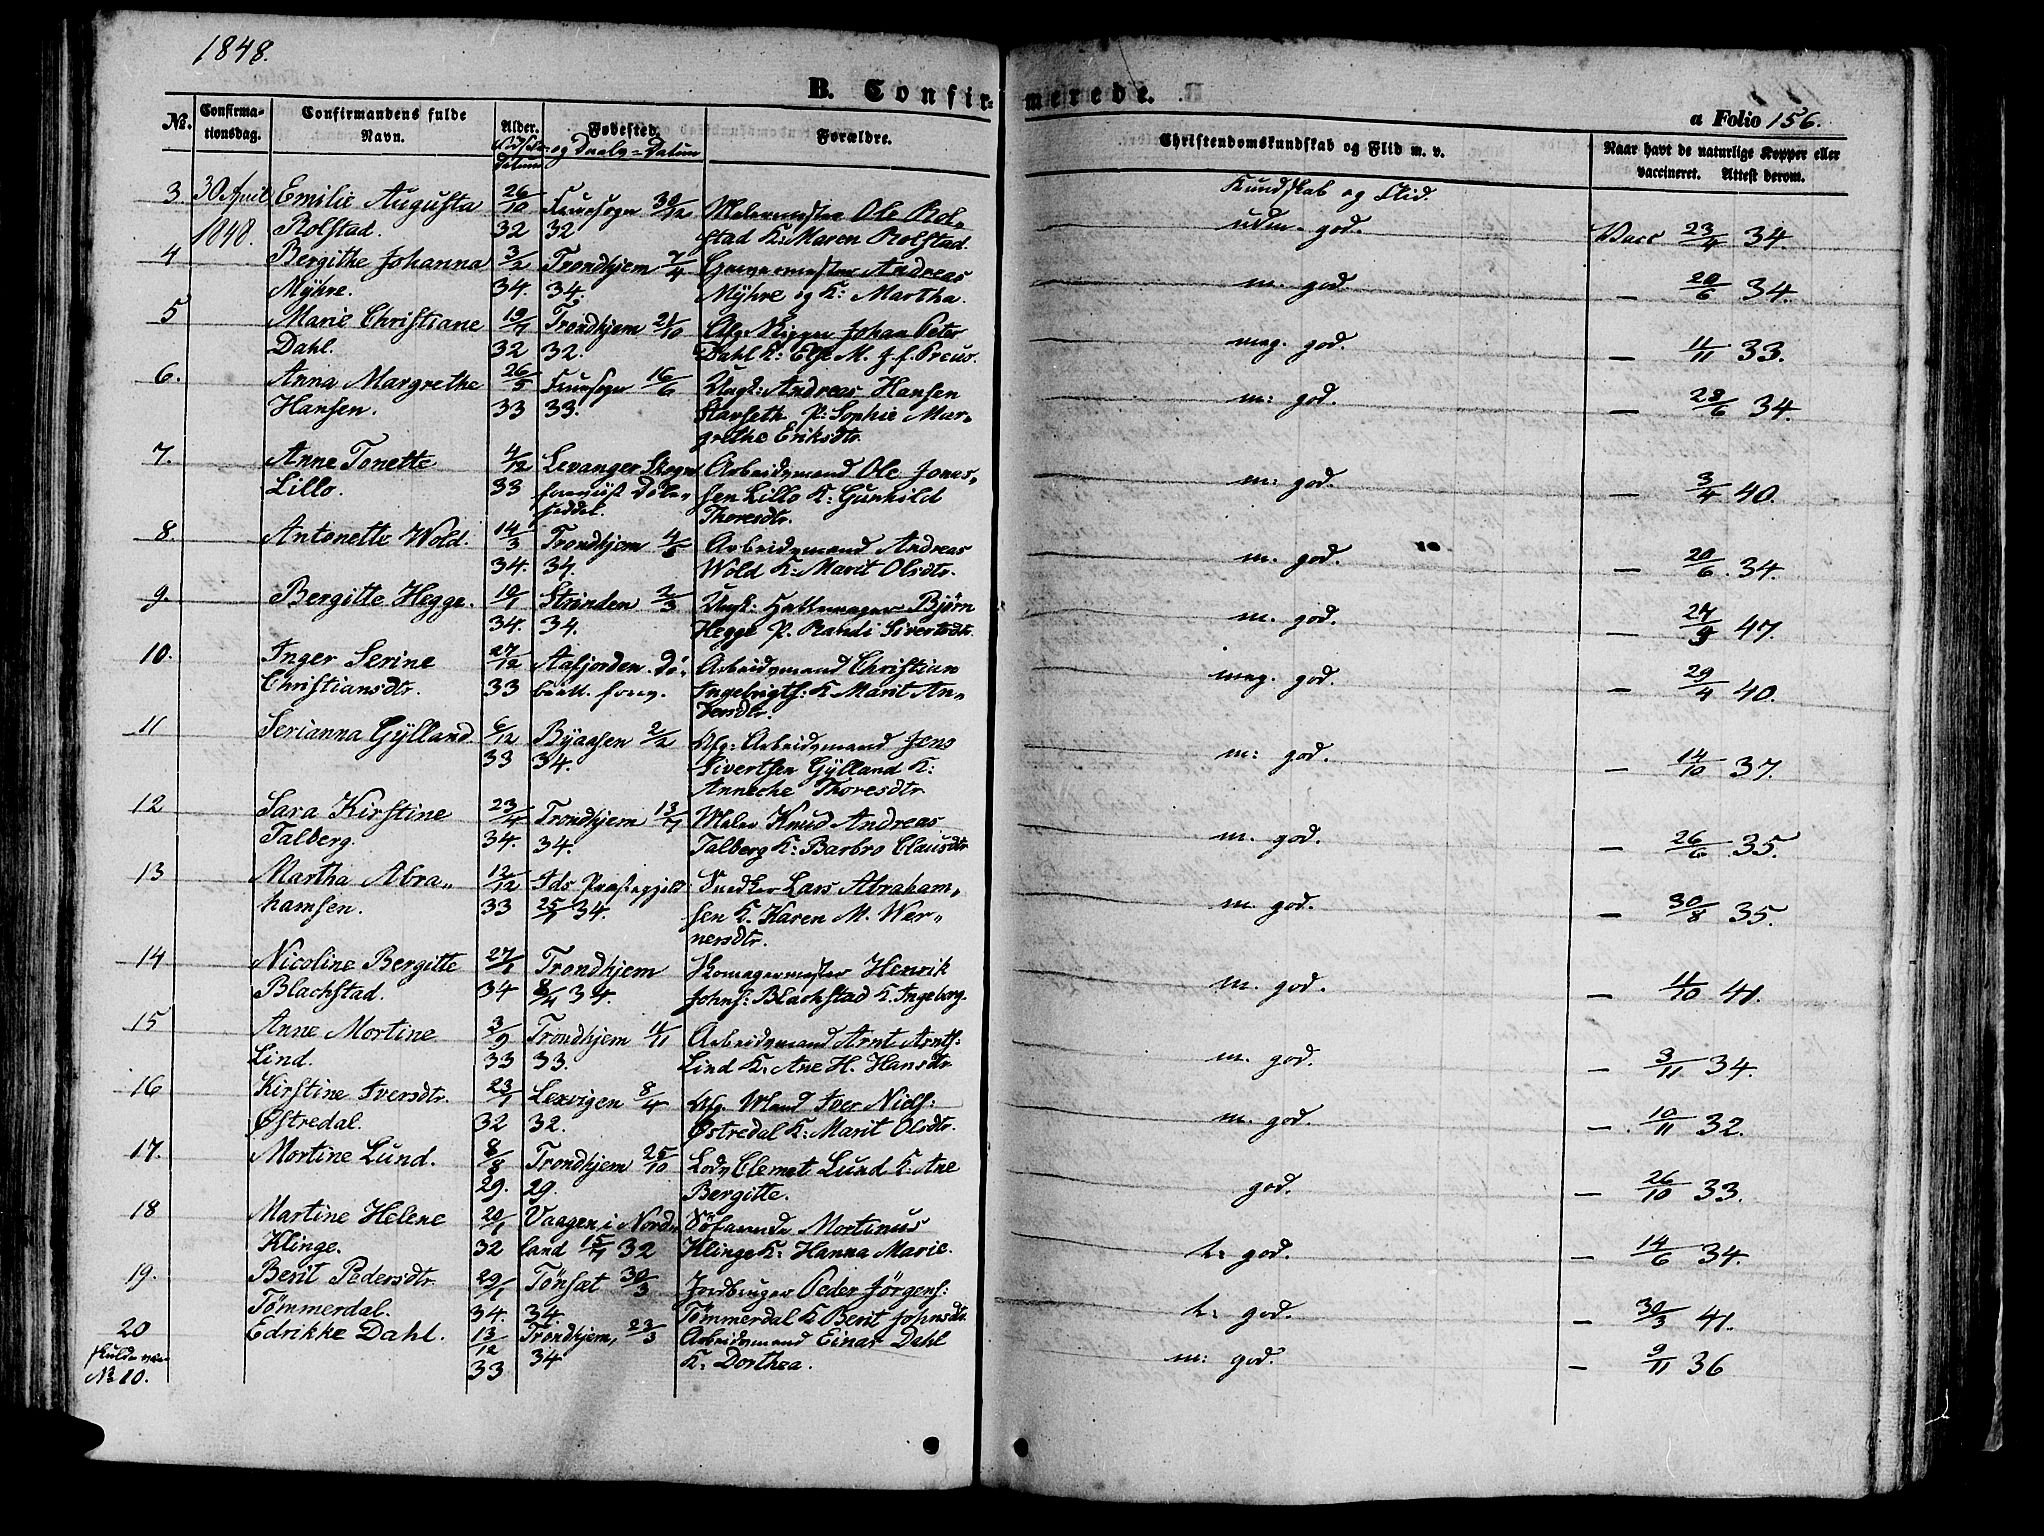 1848.
B. Confir=
merede.
a Folio 156.
No. Confirma- Confirmandens fulde Alder. Fødested. Forældre. Christendomskundskab og Flid m. v. Naar havt de naturlige Kopper eller
tionsdag. Navn. og Daabs=Datum vaccineret. Attest derom.
Datum
Kundskab og Flid.
3 30 April Emilie Augusta 26/10 30/12 Malermester Ole Rol-
1848. Rolstad. 32 32 stad K: Maren Rolstad. udm. god. Vacc 23/4 34
4 Bergithe Johanna 3/2 Trondhjem 7/4 Andreas
Mÿhre. 34. 34. Mÿhre og K: Martha. m. god. — 20/6 34.
5 Marie Christiane 19/7 Trondhjem 21/10 Afg: Johan Peter
Dahl. 32 32. Dahl K: Else M. f. Preus. meg. god. — 11/11 33.
6. Anna Margrethe 26/5 16/6 Ungk: Andreas Hansen
Hansen. 33 33. Stavseth P: Sophie Mar-
grethe Eriksdtr. m: god. — 28/6 34.
7. Anne Tonette 4/12 Levanger Skogn Arbeidsmand Ole Jones-
Lillo. 33 sen Lillo K: Gunhild
Thoresdtr. m: god. — 3/4 40.
8. Antonette Wold. 14/3 Trondhjem 4/5 Arbeidsmand Andreas
34. 34. Wold K: Marit Olsdtr. m. god. — 20/6. 34.
9. Bergitte Hegge. 19/1 Strinden 2/3 Ungk: Hattemager Bjørn
34. 34. Hegge P. Randi Sivertsdtr. m. god. — 27/9 47.
10. Inger Serine 27/12 Aafjorden. Arbeidsmand Christian
Christiansdtr. 33 Ingebrigts: K Marit An-
dersdtr. meg. god. — 29/4 40.
11 Serianna Gÿlland 6/12 Byaasen 2/2 Afg: Arbeidsmand Jens
33 34. Sivertsen Gÿlland K:
Anneche Thoresdtr m: god. — 14/10 37.
12 Sara Kirstine 23/4 Trondhjem 13/7 Maler Knud Andreas
Talberg. 34. 34. Talberg K: Barbro Clausdtr m. god. — 26/6 35.
13 Martha Abra- 12/12 Ids Præstegjeld Snedker Lars Abraham-
hamsen. 33 25/1 34. sen K. Karen M. Wer-
nersdtr. m. god. — 30/8 35.
14 Nicoline Bergitte 27/1 Trondhjem Skomagermester Henrik
Blachstad. 34 8/4 34. Johns: Blachstad K. Ingeborg. m. god. — 11/10 41.
15 Anne Mortine 3/9 Trondhjem 11/11 Arbeidsmand Arnt Arnts:
Lind. 33 33. Lind K: Ane H. Hansdtr m. god. — 3/11 34.
16 Kirstine Iversdtr. 23/1 Lexvigen 8/4 Afg. Iver Niels:
Østredal. 32 32. Østredal K: Marit Olsdtr. m. god. — 10/11 32.
17. Mortine Lund. 8/8 Trondhjem 25/10 Lods Clemet Lund K: Ane
29. 29. Bergitte. god. — 26/10 33.
18 Martine Helene 20/1 Vaagen i Nord- Søfarende Mortinus
Klinge. 32 land 15/7 32 Klinge K: Hanna Marie. t. god. — 14/6 34.
19. Berit Pedersdtr. 29/1 Tønsæt 30/3 Jordbruger Peder Jørgens:
Tømmerdal. 34. 34. Tømmerdal K Berit Johnsdtr. t: god. — 30/3 41.
20 Edrikke Dahl. 13/12 Trondhjem, 23/3 Arbeidsmand Einar Dahl
skulde være 33 34 K: Dorthea. m: god. — 9/11 36
No 10.